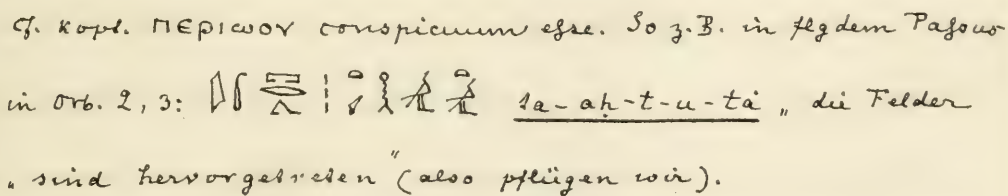 cf. kopt. ΠΕΡΙⲰΟΥ conspicuum esse. So z. B. in flgdem Passus
in Orb. 2, 3: sa-aḥ-t-u-tȧ „die Felder
„sind hervorgetreten“ (also pflügen wir).